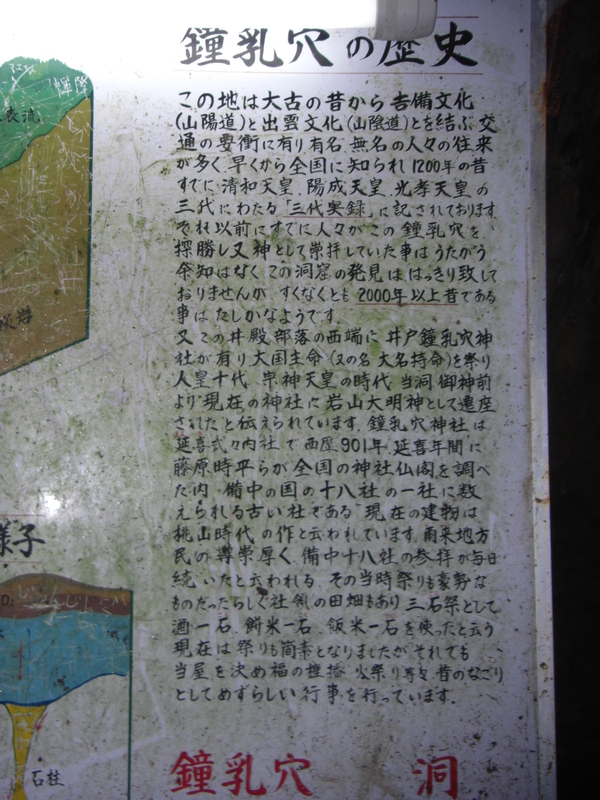 鐘乳穴の歴史
この地は大古の昔から吉備文化
(山陽道)と出雲文化(山陰道)とを結ぶ交
通の要衝に有り有名、無名の人々の往来
が多く、早くから全国に知られ1200年の昔
すでに、清和天皇、陽成天皇、光孝天皇の
三代にわたる「三代実録」に記されております。
それ以前にすでに人々がこの鐘乳穴を
探勝し又神として崇拝していた事はうたがう
余知はなくこの洞窟の発見ははっきり致して
おりませんが、すくなくとも2000年以上昔である
事はたしかなようです。
又この井殿部落の西端に井戸鐘乳穴神
社が有り大国主命(又の名大名持命)を祭り
人皇十代、崇神天皇の時代、当洞御神前
より現在の神社に岩山大明神として遷座
されたと伝えられています。鐘乳穴神社は
延喜式々内社で西歴901年、延喜年間に
藤原時平らが全国の神社仏閣を調べ
た内、備中の国の十八社の一社に数
えられる古い社である 現在の建物は
桃山時代の作と云われています。爾来地方
民の尊崇厚く、備中十八社の参拝が毎日
続いたと云われる。その当時祭りも豪勢な
ものだったらしく社領の田畑もあり、三石祭として
酒一石、餅米一石、飯米一石を使ったと云う
現在は祭りも簡素となりましたが、それでも
当屋を決め福の種蒔、火祭り等々、昔のなごり
としてめずらしい行事を行っています。
鐘乳穴 洞
表流
様子
石柱